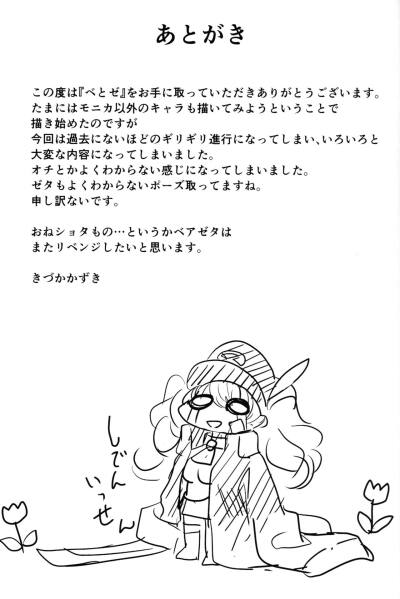 あとがき
この度は『べとゼ』をお手に取っていただきありがとうございます。
たまにはモニカ以外のキャラも描いてみようということで
描き始めたのですが
今回は過去にないほどのギリギリ進行になってしまい、いろいろと
大変な内容になってしまいました。
オチとかよくわからない感じになってしまいました。
ゼタもよくわからないポーズ取ってますね。
申し訳ないです。
おねショタもの…というかベアゼタは
またリベンジしたいと思います。
きづかかずき
しでん
いっせん